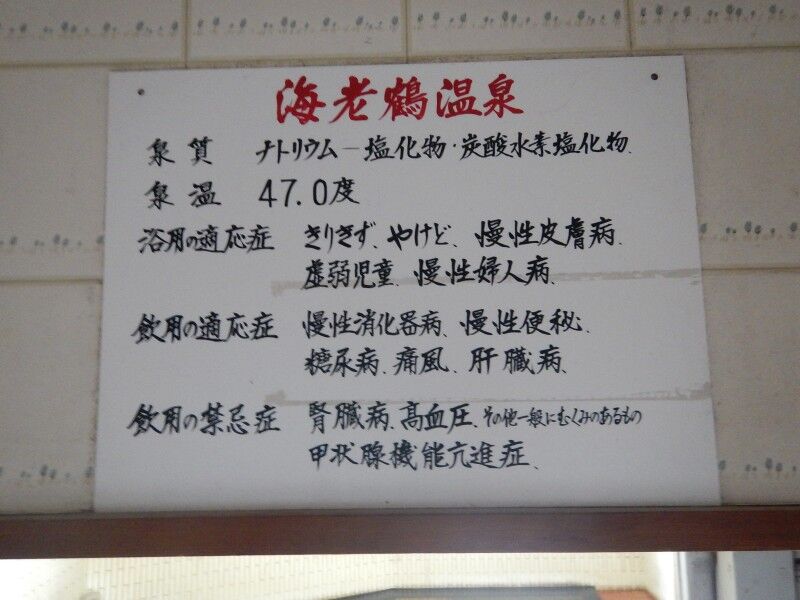 海老鶴温泉
泉質 ナトリウム－塩化物・炭酸水素塩化物、
泉温 47.0度
浴用の適応症 きりきず、やけど、慢性皮膚病、
虚弱児童、慢性婦人病、
飲用の適応症 慢性消化器病、慢性便秘、
糖尿病、痛風、肝臓病、
飲用の禁忌症 腎臓病、高血圧、その他一般にむくみのあるもの
甲状腺機能亢進症、